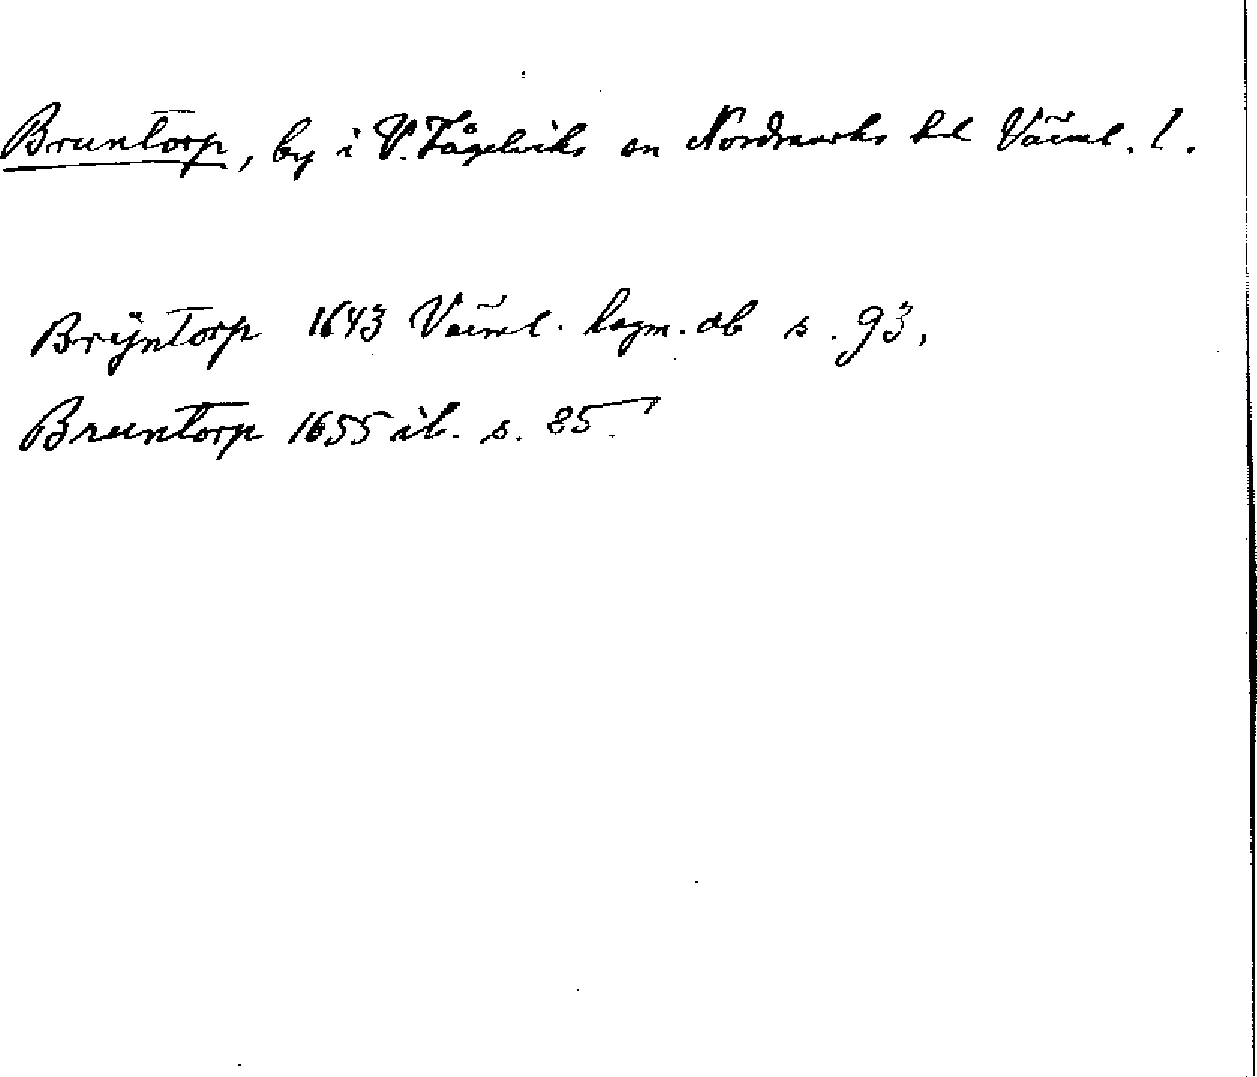 Bruntorp, by i V. Fågelviks sn Nordmarks hd Värml. l.
Brÿntorp 1643 Värml. lagm. db s. 93,
Bruntorp 1655 ib. s. 85.